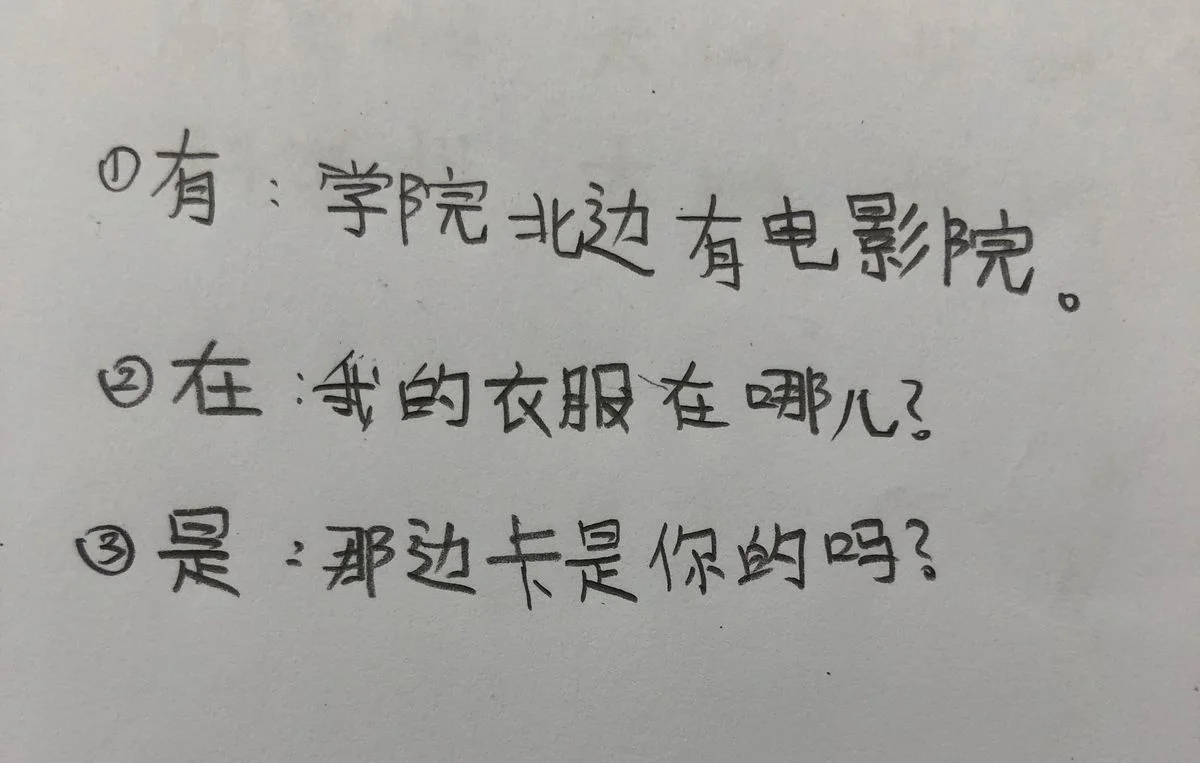 ①有：学院北边有电影院。
②在：我的衣服在哪儿？
③是：那边卡是你的吗？